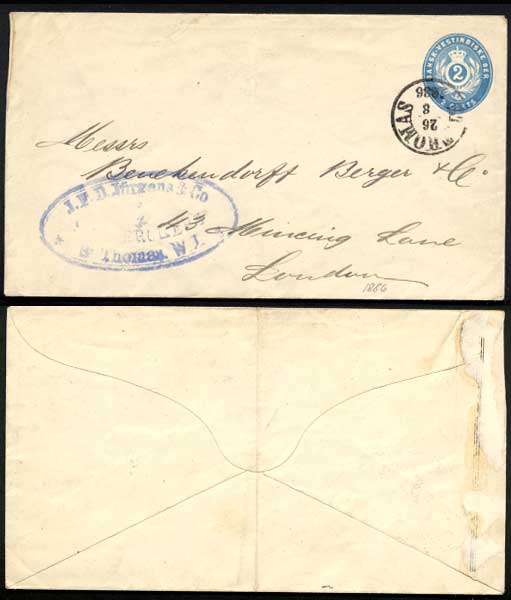 DANSK-VESTINDISKE ØER
2
2 CENTS
THOMAS
26
8
1886
Messrs
Benekendorff Berger & Co
43 Mincing Lane
London
1886
J. F. D. Jürgens & Co
St Thomas, W. I.